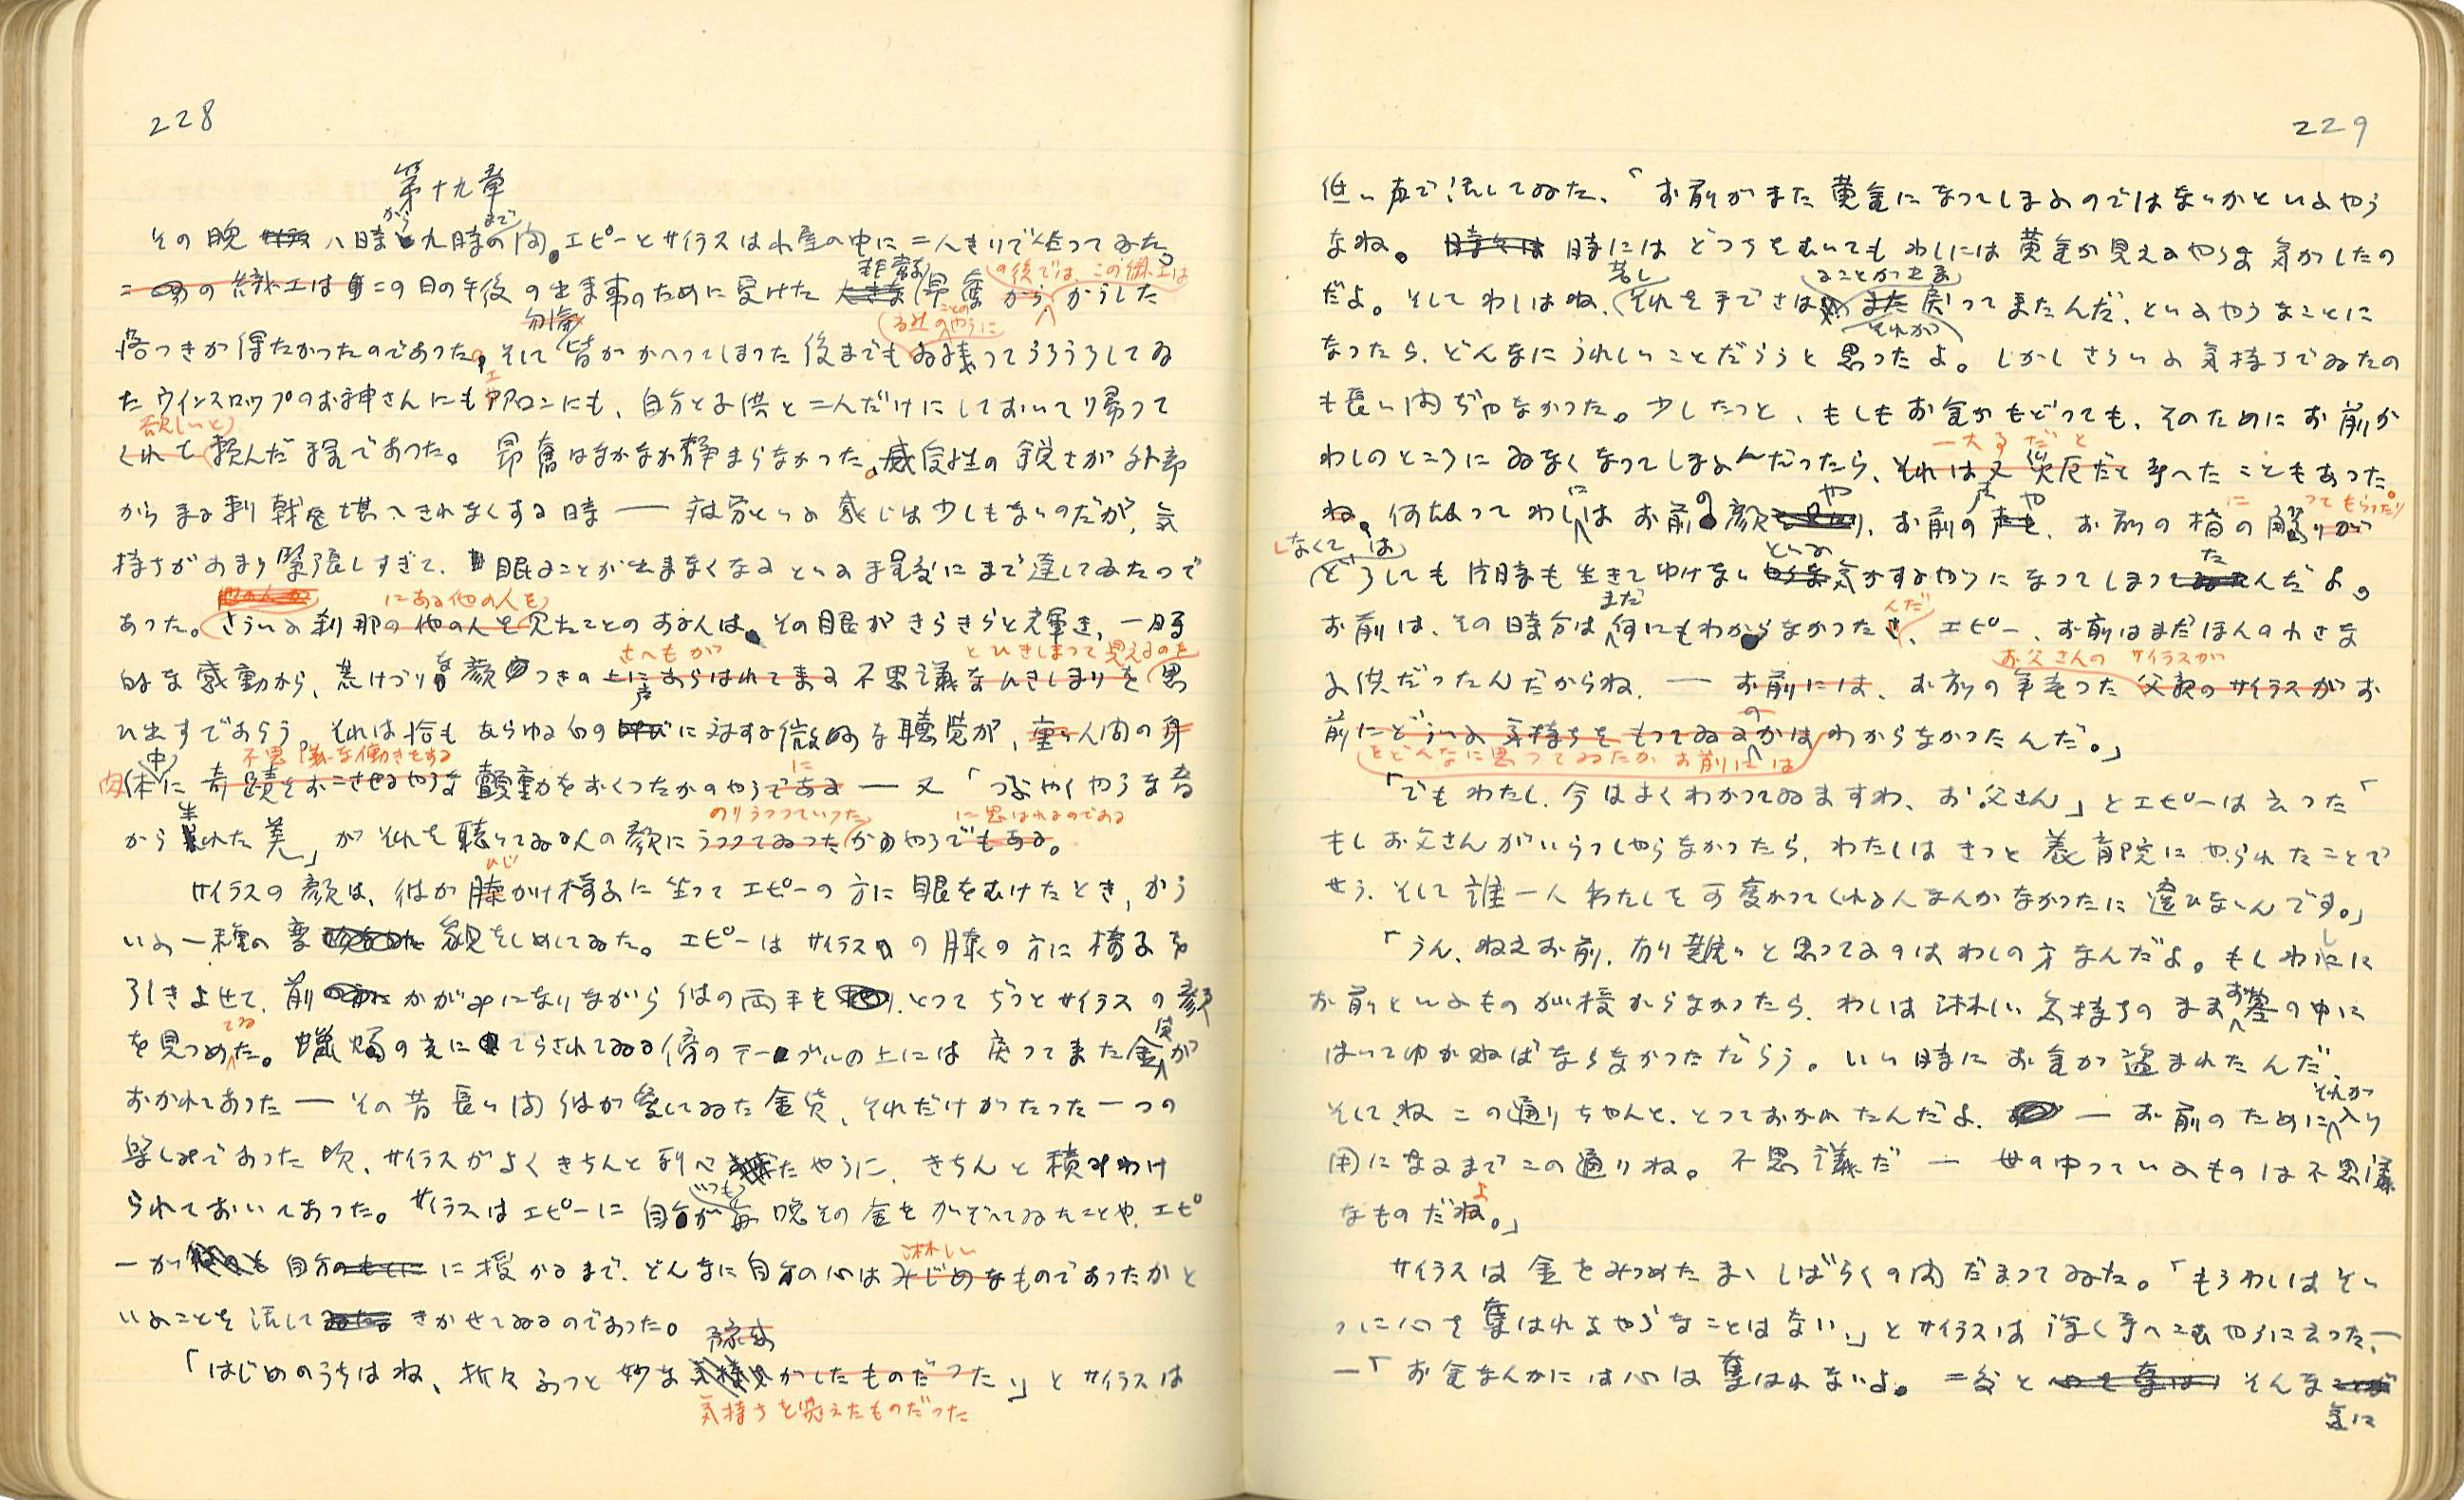 228
第十九章
その晩 八時から九時までの間。エピーとサイラスは小屋の中に二人きりで坐つてゐた。
この織工はこの日の午後の出来事のために受けた非常な昂奮の後では、この織工はかうした
落つきが得たかつたのであつた。そして皆がかへつてしまつた後までも居残つてうろうろしてゐ
たウインスロップのお神さんにもエアロンにも、自分と子供と二人だけにしておいて帰つて
欲しいと頼んだ程であつた。昂奮はなかなか静まらなかつた。感受性の鋭さが外部
から来る刺戟を堪へきれなくする時 ― 疲労といふ感じは少しもないのだが、気
持ちがあまり緊張しすぎて、眠ることが出来なくなるといふ程度にまで達してゐたので
あつた。さういふ刹那にある他の人を見たことのある人は、その眼がきらきらと輝き、一時
的な感動から、荒けづりな顔つきさへもがひきしまつて見えるのを思
ひ出すであらう。それは恰もあらゆる内の声に対する微妙な聴覚が、重い人間の
肉体の中に不思議な働きをする顫動をおくつたかのやうに ― 又「つぶやくやうな音
から生れた美」がそれを聴いてゐる人の顔にのりうつつていつたかのやうに思はれるのである。
サイラスの顔は、彼が肱かけ椅子に坐つてエピーの方に眼をむけたとき、かう
いふ一種の変貌をしめしてゐた。エピーはサイラスの膝の方に椅子を
引きよせて、前かがみになりながら彼の両手をとつてぢつとサイラスの顔
を見つめてゐた。蠟燭の光にてらされてゐる傍のテーブルの上には戻つてきた金貨が
おかれてあつた ― その昔長い間彼が愛してゐた金貨、それだけがたつた一つの
楽しみであつた頃、サイラスがよくきちんと列べたやうに、きちんと積みわけ
られておいてあつた。サイラスはエピーに自分がいつも毎晩その金をかぞへてゐたことや、エピ
ーが自分に授かるまで、どんなに自分の心は淋しいものであつたかと
いふことを話してきかせてゐるのであつた。
「はじめのうちはね、折々ふつと妙な気持ちを覚えたものだつた」とサイラスは
229
低い声で話してゐた、「お前がまた黄金になつてしまふのではないかといふやう
なね。時にはどつちをむいてもわしには黄金が見えるやうな気がしたの
だよ。そしてわしはね、若しそれを手でさはることが出来、それが戻つてきたんだ、といふやうなことに
なつたら、どんなにうれしいことだらうと思つたよ。しかしさういふ気持ちでゐたの
も長い間ぢやなかつた。少したつと、もしもお金がもどつても、そのためにお前が
わしのところにゐなくなつてしまふんだつたら、一大災厄だと考へたこともあつた。
何故つてわしにはお前の顔や、お前の声や、お前の指に触つてもらつたり
しなくては、どうしても片時も生きてゆけないといふ気がするやうになつてしまつたんだよ。
お前は、その時分はまだ何にもわからなかつたんだ、エピー、お前はまだほんの小さな
子供だつたんだからね、― お前の年老つたお父さんのサイラスがお
前をどんなに思つてゐたかお前にはわからなかつたんだ。」
「でもわたし、今はよくわかつてゐますわ、お父さん」とエピーは云つた「
もしお父さんがいらつしやらなかつたら、わたしはきつと養育院にやられたことで
せう、そして誰一人わたしを可愛がつてくれる人なんかなかつたに違ひないんです。」
「うん、ねえお前、有り難いと思つてるのはわしの方なんだよ。もしわしに
お前といふものが授からなかつたら、わしは淋しい気持ちのままお墓の中に
はいつてゆかねばならなかつただらう。いい時にお金が盗まれたんだ
そしてね この通りちやんと、とつておかれたんだよ、― お前のためにそれが入り
用になるまでこの通りね。不思議だ ― 世の中つていふものは不思議
なものだよ。」
サイラスは金をみつめたまゝしばらくの間だまつてゐた。「もうわしはそい
つに心を奪はれるやうなことはない、」とサイラスは深く考へこむやうに云つた ―
―「お金なんかには心は奪はれないよ。二度とそんな
金に